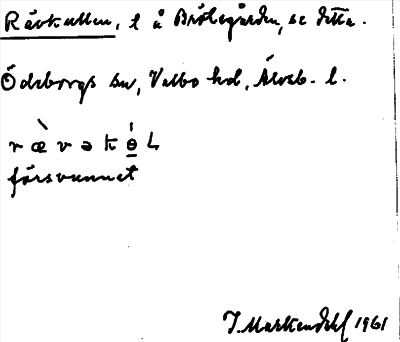 Rävkullen, l å Brötegården, se detta.
Ödeborgs sn, Valbo hd, Älvsb. l.
r æ̀ v ə k ɵ́ L
försvunnet
J. Markendahl 1961